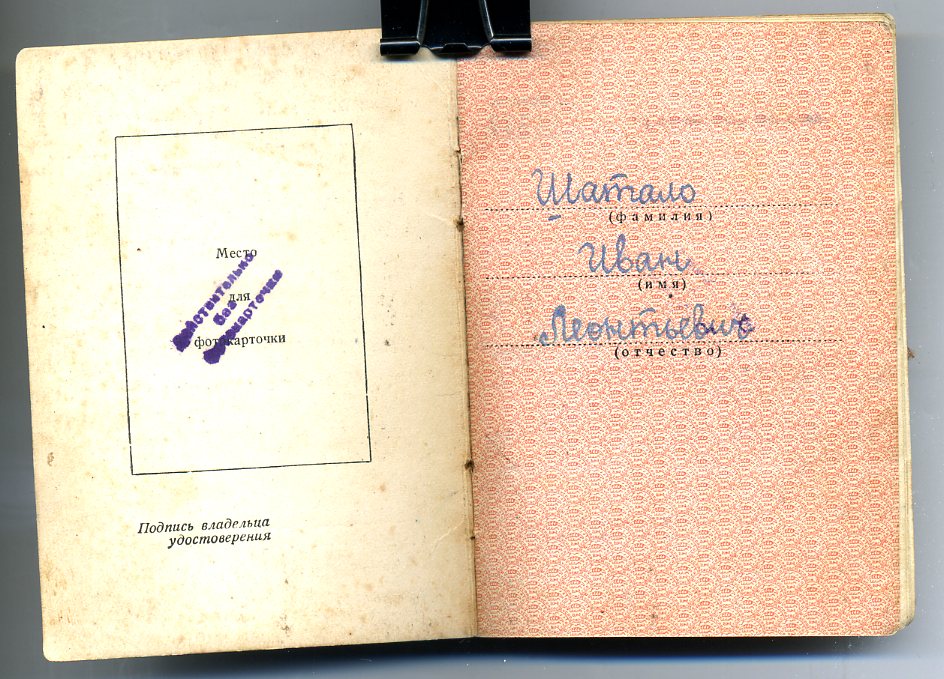 Место
для
фотокарточки
Действительно
без
фотокарточки
Подпись владельца
удостоверения
Шатало
(фамилия)
Иван
(имя)
Леонтьевич
(отчество)